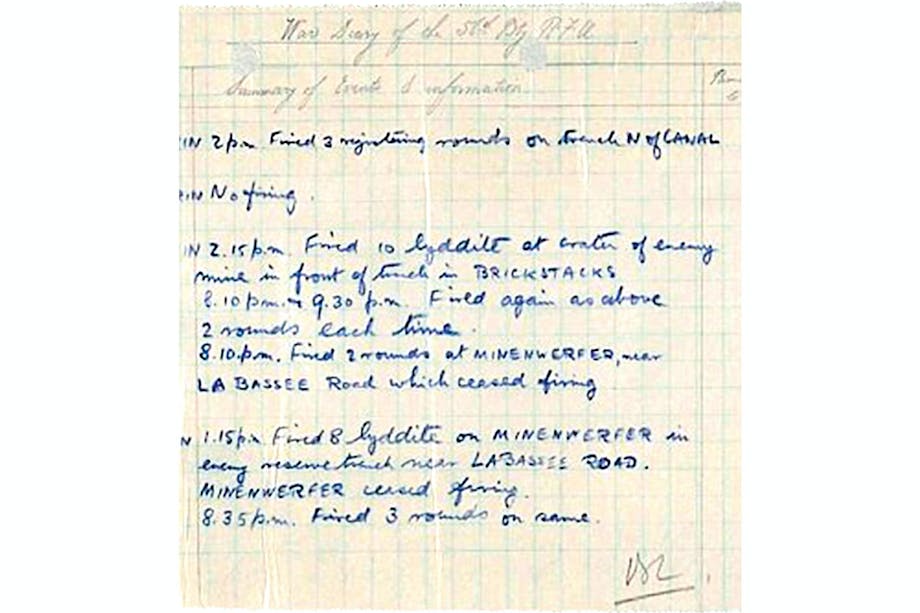 War Diary of the 56th Bty R.F.A
Summary of Events & information
IN 2 p.m Fired 3 registering rounds on trench N of CANAL
IN No firing.
IN 2.15 p.m. Fired 10 lyddite at crater of enemy
mine in front of trench in BRICKSTACKS
8.10 p.m. & 9.30 p.m. Fired again as above
2 rounds each time.
8.10 p.m. Fired 2 rounds at MINENWERFER, near
LA BASSEE Road which ceased firing
N 1.15 p.m Fired 8 lyddite on MINENWERFER in
enemy reserve trench near LA BASSEE ROAD.
MINENWERFER ceased firing.
8.35 p.m. Fired 3 rounds on same.